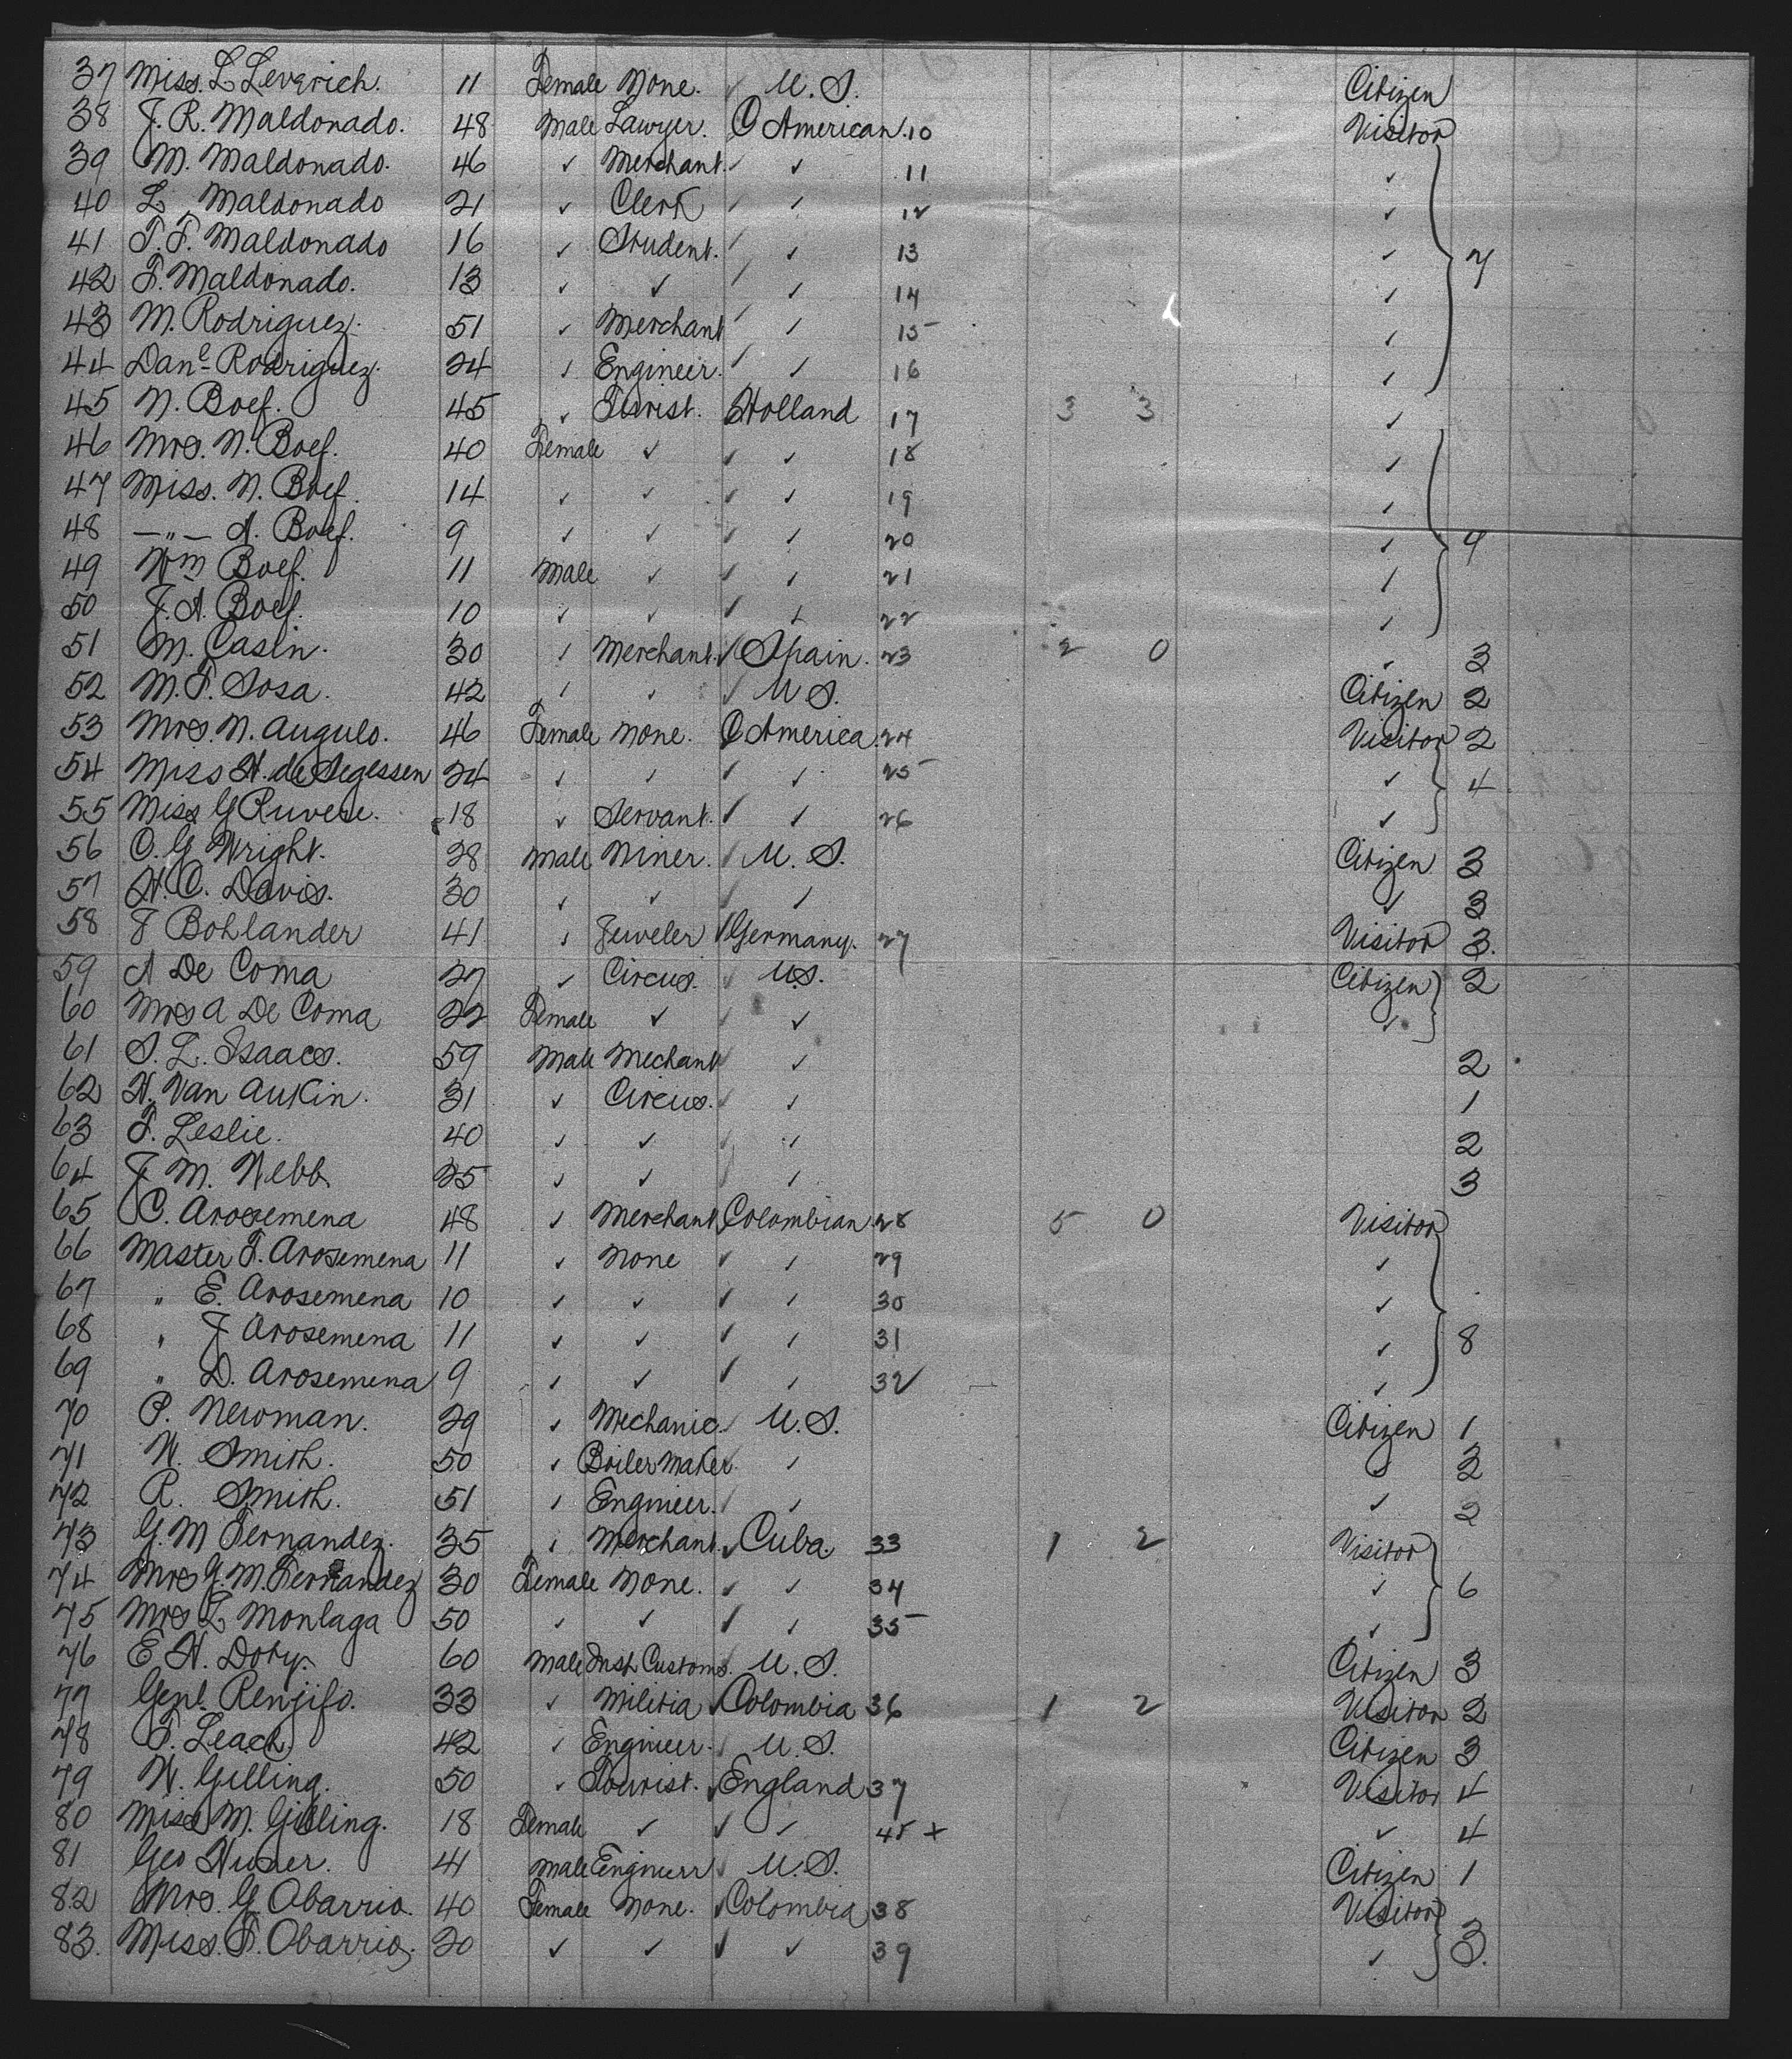 37 Miss. L. Leverich. 11 Female None. ✓ U. S. Citizen
38 J. R. Maldonado. 48 Male Lawyer. C American. 10 Visitor
39 M. Maldonado. 46 ✓ Merchant. ✓ ✓ 11 ✓
40 L. Maldonado 21 ✓ Clerk ✓ ✓ 12 ✓
41 T. F. Maldonado 16 ✓ Student. ✓ ✓ 13 ✓ 7
42 F. Maldonado. 13 ✓ ✓ ✓ ✓ 14 ✓
43 M. Rodriguez. 51 ✓ Merchant ✓ ✓ 15 ✓
44 Danl Rodriguez. 24 ✓ Engineer. ✓ ✓ 16 ✓
45 N. Boef. 45 ✓ Torist. Holland 17 3 3 ✓
46 Mrs. N. Boef. 40 Female ✓ ✓ ✓ 18 ✓
47 Miss. N. Boef. 14 ✓ ✓ ✓ ✓ 19 ✓
48 —"— A. Boef. 9 ✓ ✓ ✓ ✓ 20 ✓ 4
49 Wm Boef. 11 Male ✓ ✓ ✓ 21 ✓
50 J. A. Boef. 10 ✓ ✓ ✓ ✓ 22 ✓
51 M. Casin. 30 ✓ Merchant. ✓ Spain. 23 2 0 ✓ 3
52 M. F. Sosa. 42 ✓ ✓ ✓ U S. Citizen 2
53 Mrs. N. Augulo. 46 Female None. C America. 24 Visitor 2
54 Miss H. de Segessen 24 ✓ ✓ ✓ ✓ 25 ✓ 4
55 Miss G Ruvere. 18 ✓ Servant. ✓ ✓ 26 ✓
56 O. G Wright. 28 Male Miner. ✓ U. S. Citizen 3
57 H. C. Davis. 30 ✓ ✓ ✓ ✓ ✓ 3
58 J Bohlander 41 ✓ Jeweler ✓ Germany. 27 Visitor 3.
59 A De Coma 27 ✓ Circus. ✓ U.S. Citizen 2
60 Mrs A De Coma 22 Female ✓ ✓ ✓ ✓
61 S. L. Isaacs. 59 Male Mechant ✓ ✓ 2
62 H. Van Aukin. 31 ✓ Circus. ✓ ✓ 1
63 F. Leslie. 40 ✓ ✓ ✓ ✓ 2
64 J M. Webb 25 ✓ ✓ ✓ ✓ 3
65 C. Arosemena 48 ✓ Merchant Colombian 28 5 0 Visitor
66 Master F. Arosemena 11 ✓ None ✓ ✓ 29 ✓
67 " E. Arosemena 10 ✓ ✓ ✓ ✓ 30 ✓
68 " J Arosemena 11 ✓ ✓ ✓ ✓ 31 ✓ 8
69 " D. Arosemena 9 ✓ ✓ ✓ ✓ 32 ✓
70 P. Newman. 29 ✓ Mechanic. ✓ U. S. Citizen 1
71 W. Smith. 50 ✓ Boiler Maker. ✓ ✓ 2
72 R. Smith. 51 ✓ Engineer. ✓ ✓ ✓ 2
73 G. M Fernandez. 35 ✓ Merchant. ✓ Cuba. 33 1 2 Visitor
74 Mrs G. M. Fernandez 30 Female None. ✓ ✓ 34 ✓ 6
75 Mrs L Monlaga 50 ✓ ✓ ✓ ✓ 35 ✓
76 E H. Doty. 60 Male Insp Customs. U. S. Citizen 3
77 Genl. Renjifo. 33 ✓ Militia ✓ Colombia 36 1 2 Visitor 2
78 F. Leach 42 ✓ Engineer. ✓ U. S. Citizen 3
79 W. Gilling. 50 ✓ Tourist. ✓ England 37 Visitor 4
80 Miss M. Gilling. 18 Female ✓ ✓ ✓ 45 + ✓ 4
81 Geo Huner. 41 Male Engineer ✓ U. S. Citizen 1
82 Mrs. G Obarrio. 40 Female None. ✓ Colombia 38 Visitor
83. Miss. F. Obarrio. 20 ✓ ✓ ✓ ✓ 39 ✓ 3.